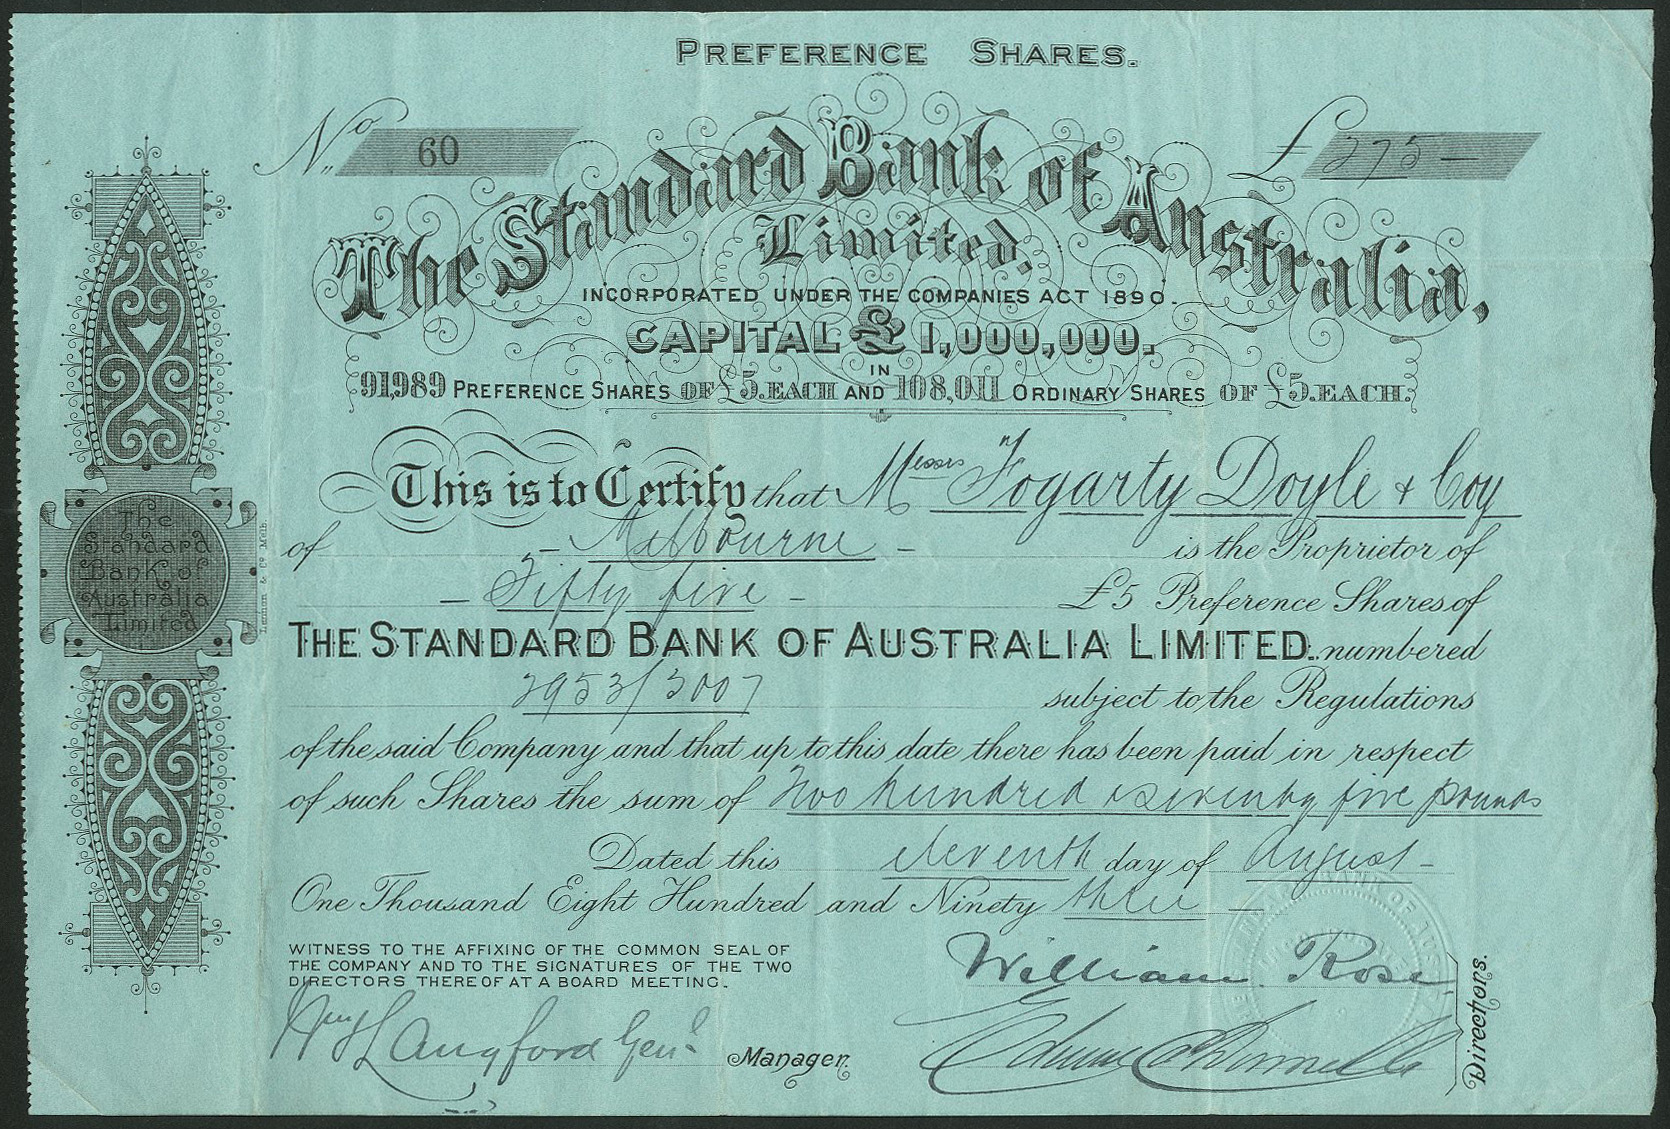 PREFERENCE SHARES.
No. 60
£275—
The Standard Bank of Australia,
Limited.
INCORPORATED UNDER THE COMPANIES ACT 1890.
CAPITAL £1,000,000.
IN
91,989 PREFERENCE SHARES OF £5. EACH AND 108,011 ORDINARY SHARES OF £5. EACH.
This is to Certify that Messrs Fogarty Doyle & Coy
of — Melbourne — is the Proprietor of
— Fifty five — £5 Preference Shares of
THE STANDARD BANK OF AUSTRALIA LIMITED. numbered
2953/3007 subject to the Regulations
of the said Company and that up to this date there has been paid in respect
of such Shares the sum of Two hundred & seventy five pounds
Dated this eleventh day of August —
One Thousand Eight Hundred and Ninety three —
WITNESS TO THE AFFIXING OF THE COMMON SEAL OF
THE COMPANY AND TO THE SIGNATURES OF THE TWO
DIRECTORS THEREOF AT A BOARD MEETING.
William Rose
Langford Genl Manager.
Directors.
The
Standard
Bank of
Australia
Limited